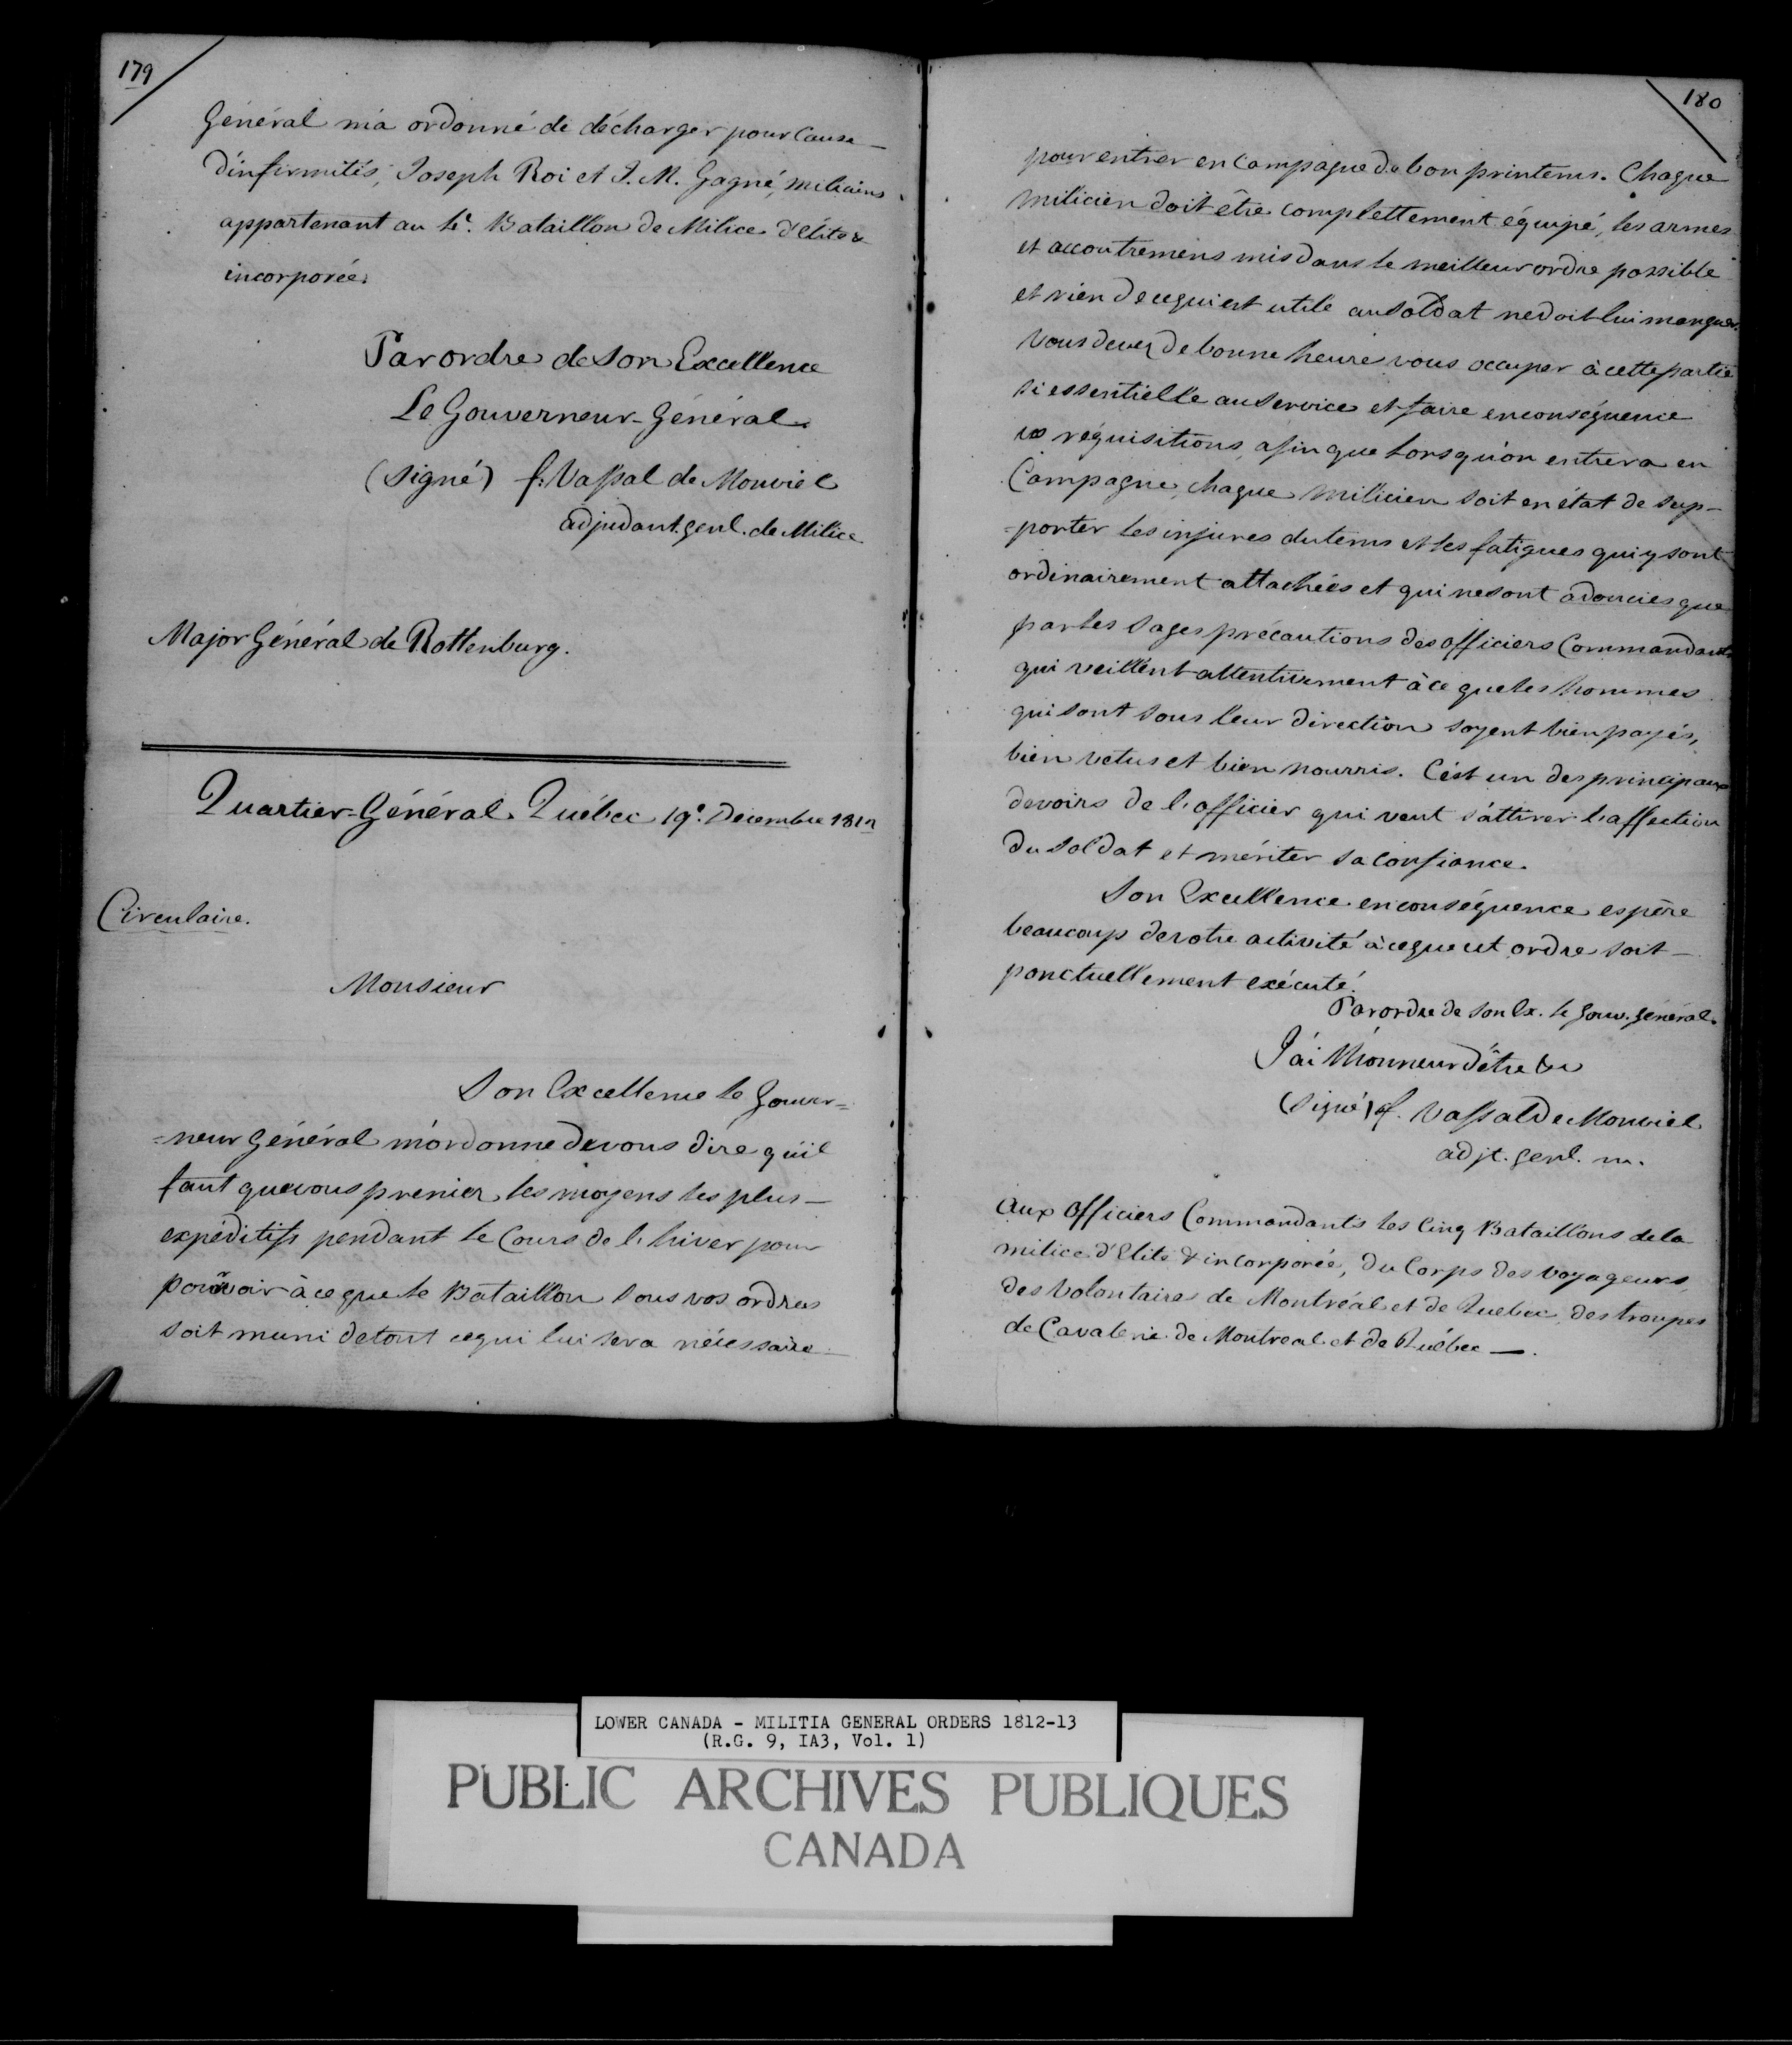 179
Général m'a ordonné de décharger pour Cause
d'infirmités, Joseph Roi et J. M. Gagné, miliciens
appartenant au Bataillon de Milice d'élite &
incorporée.
Par ordre de Son Excellence
Le Gouverneur-Général.
(Signé) f: Vassal de Monviel
adjudant. genl. de Milice
Major Général de Rottenburg.
Quartier-Général. Québec 19e. Decembre 1812
Circulaire.
Monsieur
Son Excellence le Gouver=
=neur Général m'ordonne de vous dire qu'il
faut que vous preniez les moyens les plus
expéditifs pendant le Cours de l'hiver pour
pourvoir à ce que le Bataillon sous vos ordres
soit muni de tout ce qui lui sera nécessaire
180
pour entrer en Campagne de bon printems. Chaque
Milicien doit être complettement équipé, les armes
et accoutremens mis dans le meilleur ordre possible
et rien de ce qui est utile au soldat ne doit lui manquer.
Vous devez de bonne heure vous occuper à cette partie
si essentielle au Service et faire en conséquence
vos réquisitions, afin que lors qu'on entrera en
Campagne, chaque Milicien soit en état de sup-
=porter les injures du tems et les fatigues qui y sont
ordinairement attachées et qui ne sont adoucies que
par les sages précautions des officiers Commandants
qui veillent attentivement à ce que les hommes
qui sont sous leur direction soyent bien payés,
bien vetus et bien nourris. C'est un des principaux
devoirs de l'officier qui veut s'attirer l'affection
du soldat et mériter sa Confiance.
Son Excellence en conséquence espère
beaucoup de votre activité à ce que cet ordre soit
ponctuellement exécuté.
Par ordre de Son Ex. le Gouv. Général.
J'ai l'honneur d'être &c
(Signé) f. Vassal De Monviel
adjt. genl. m.
Aux Officiers Commandants les Cinq Bataillons de la
milice d'Elite & incorporée, du Corps des Voyageurs,
des Volontaires de Montréal et de Quebec, des troupes
de Cavalerie de Montreal et de Québec —.
LOWER CANADA - MILITIA GENERAL ORDERS 1812-13
(R.G. 9, IA3, Vol. 1)
PUBLIC ARCHIVES PUBLIQUES
CANADA